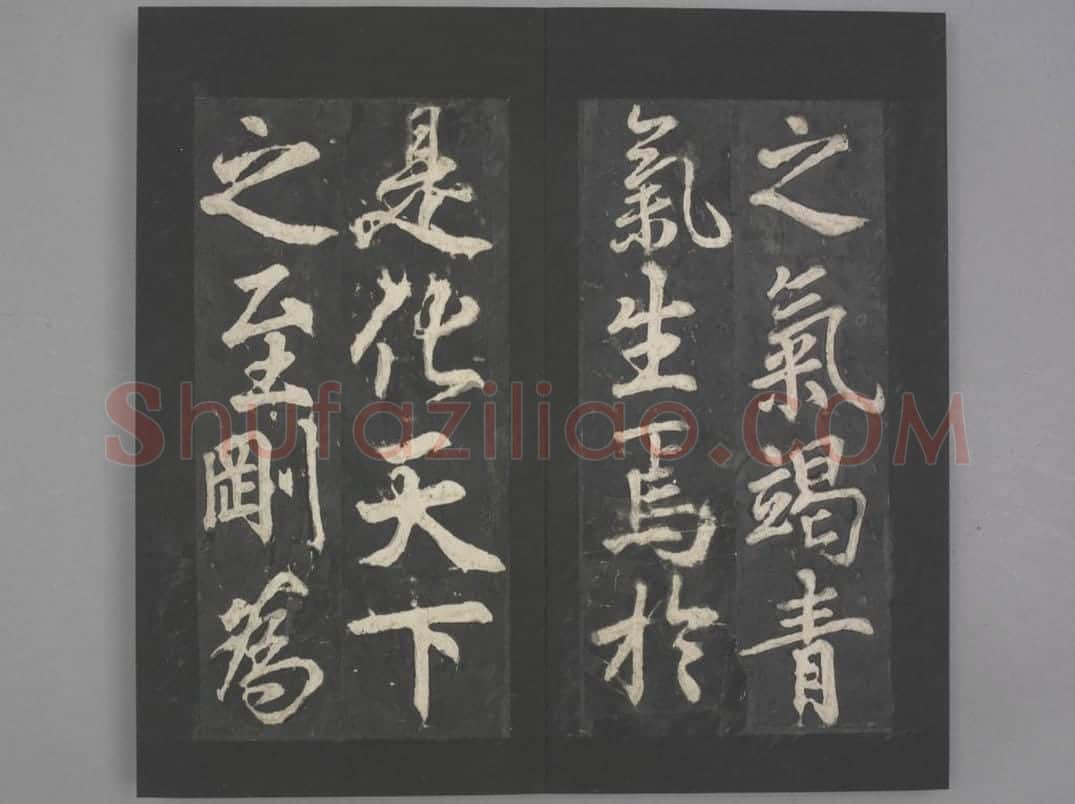 之氣竭青
氣生焉於
是化天下
之至剛為
Shufaziliao.COM